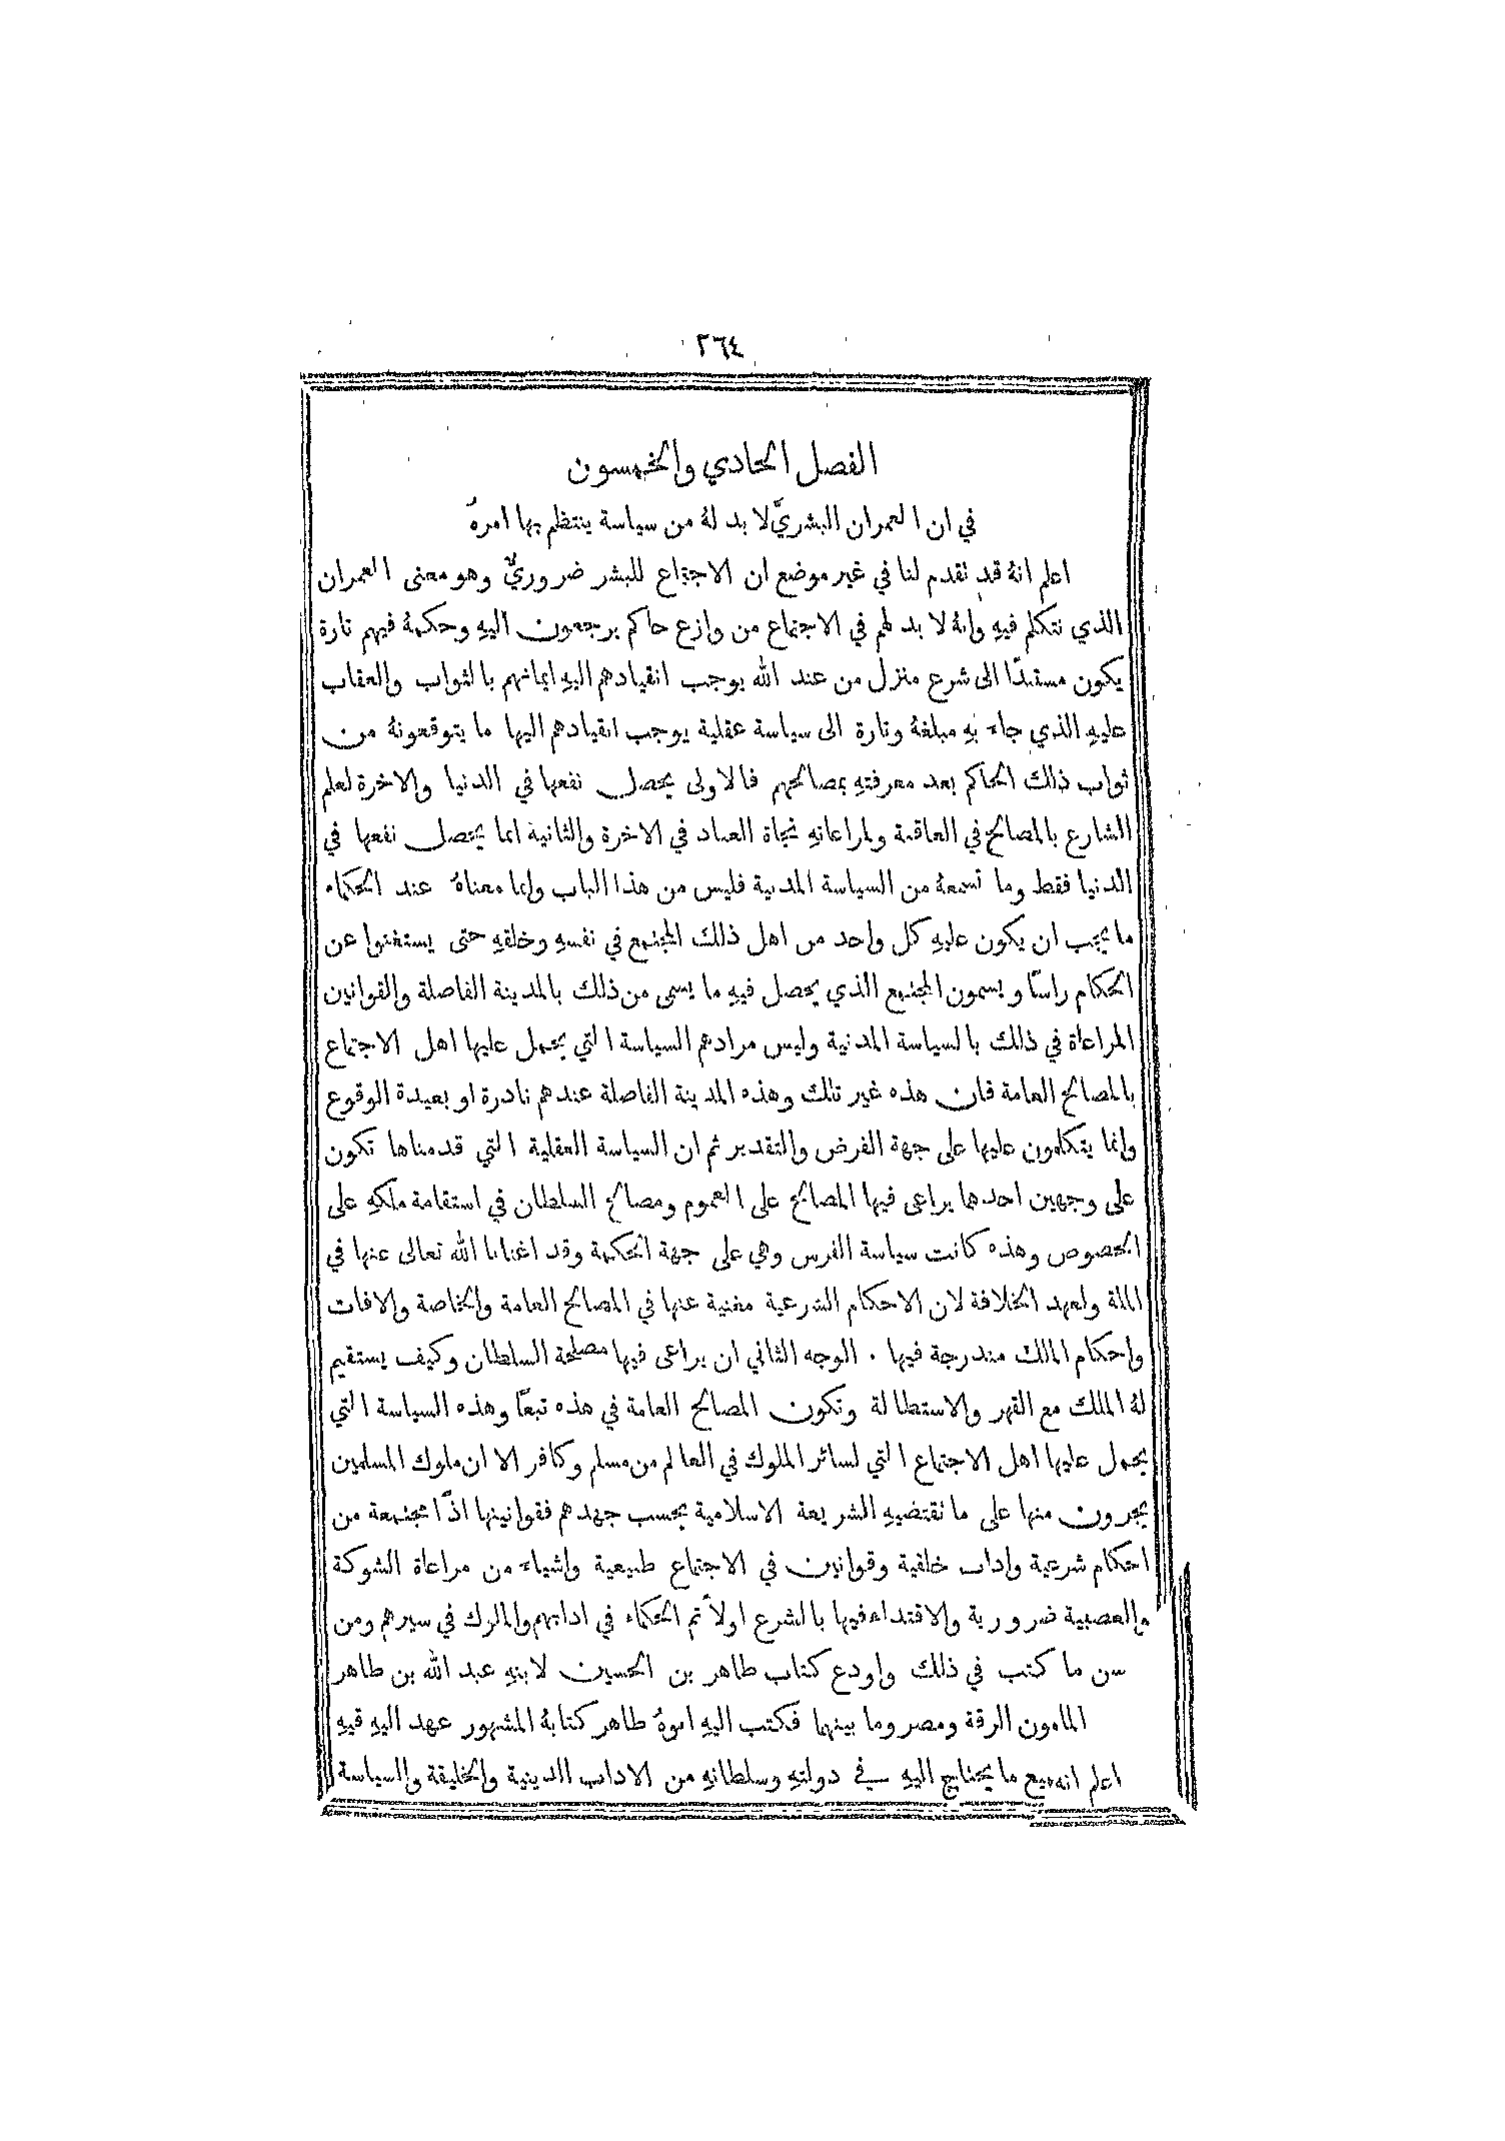 ٢٦٤
الفصل الحادي والخمسون
في ان العمران البشريّ لا بد لهُ من سياسة ينتظم بها امرهُ
اعلم انهُ قد تقدم لنا في غير موضع ان الاجتماع للبشر ضروريٌّ وهو معنى العمران
الذي نتكلم فيهِ وانهُ لا بد لهم في الاجتماع من وازع حاكم يرجعون اليهِ وحكمهُ فيهم تارة
يكون مستندًا الى شرع منزل من عند الله يوجب انقيادهم اليهِ ايمانهم بالثواب والعقاب
عليهِ الذي جاء بهِ مبلغهُ وتارة الى سياسة عقلية يوجب انقيادهم اليها ما يتوقعونهُ من
ثواب ذلك الحاكم بعد معرفتهِ بمصالحهم فالاولى يحصل نفعها في الدنيا والاخرة لعلم
الشارع بالمصالح في العاقبة ولمراعاتهِ نجاة العباد في الاخرة والثانية انما يحصل نفعها في
الدنيا فقط وما تسمعهُ من السياسة المدنية فليس من هذا الباب وانما معناهُ عند الحكماء
ما يجب ان يكون عليهِ كل واحد من اهل ذلك المجتمع في نفسهِ وخلقهِ حتى يستغنوا عن
الحكام راسًا ويسمون المجتمع الذي يحصل فيهِ ما يسمى من ذلك بالمدينة الفاضلة والقوانين
المراعاة في ذلك بالسياسة المدنية وليس مرادهم السياسة التي يحمل عليها اهل الاجتماع
بالمصالح العامة فان هذه غير تلك وهذه المدينة الفاضلة عندهم نادرة او بعيدة الوقوع
وانما يتكلمون عليها على جهة الفرض والتقدير ثم ان السياسة العقلية التي قدمناها تكون
على وجهين احدهما يراعى فيها المصالح على العموم ومصالح السلطان في استقامة ملكهِ على
الخصوص وهذه كانت سياسة الفرس وهي على جهة الحكمة وقد اغنانا الله تعالى عنها في
الملة ولعهد الخلافة لان الاحكام الشرعية مغنية عنها في المصالح العامة والخاصة والافات
واحكام الملك مندرجة فيها . الوجه الثاني ان يراعى فيها مصلحة السلطان وكيف يستقيم
لهُ الملك مع القهر والاستطالة وتكون المصالح العامة في هذه تبعًا وهذه السياسة التي
يحمل عليها اهل الاجتماع التي لسائر الملوك في العالم من مسلم وكافر الا ان ملوك المسلمين
يجرون منها على ما تقتضيهِ الشريعة الاسلامية بحسب جهدهم فقوانينها اذًا مجتمعة من
احكام شرعية واداب خلقية وقوانين في الاجتماع طبيعية واشياء من مراعاة الشوكة
والعصبية ضرورية والاقتداء فيها بالشرع اولاً ثم الحكماء في ادابهم والملوك في سيرهم ومن
سن ما كتب في ذلك واودع كتاب طاهر بن الحسين لابنهِ عبد الله بن طاهر
المامون الرقة ومصر وما بينهما فكتب اليهِ ابوهُ طاهر كتابهُ المشهور عهد اليهِ فيهِ
ما يحتاج اليهِ في دولتهِ وسلطانهِ من الاداب الدينية والخلقية والسياسة